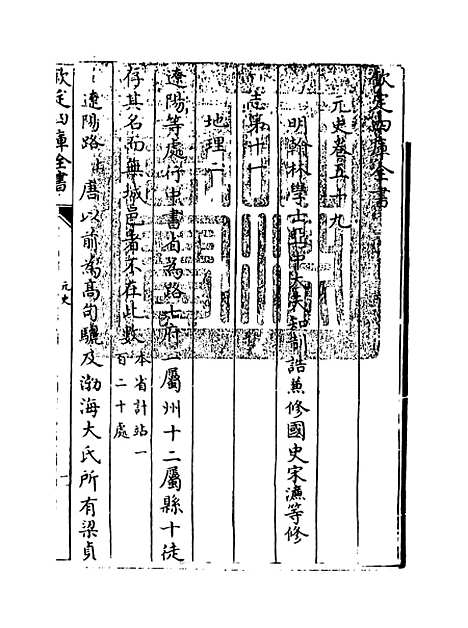 欽定四庫全書
元史卷五十九
明翰林學士亞中大夫知制誥兼修國史宋濂等修
志第十一
地理二
遼陽等處行中書省為路七府一屬州十二屬縣十徒
存其名而無城邑者不在此數本省計站一
百二十處
遼陽路 唐以前為高句驪及渤海大氏所有梁貞
欽定四庫全書
元史
一